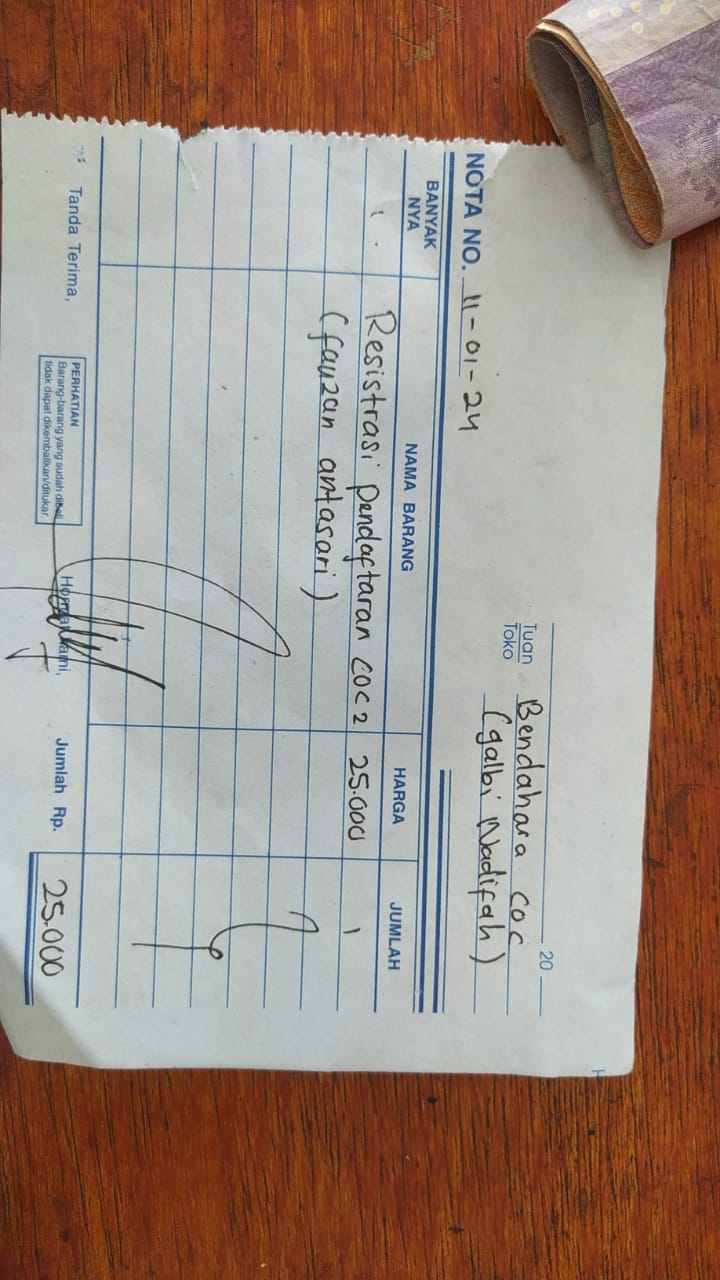 20
Tuan
Toko
Bendahara COC
(galbi Nadifah)
NOTA NO. 11-01-24
BANYAK NYA
NAMA BARANG
HARGA
JUMLAH
1. Resistrasi pendaftaran COC 2 25.000 1
(fauzan antasari)
Tanda Terima,
PERHATIAN
Barang-barang yang sudah dibeli
tidak dapat dikembalikan/ditukar.
Hormat kami,
Jumlah Rp. 25.000